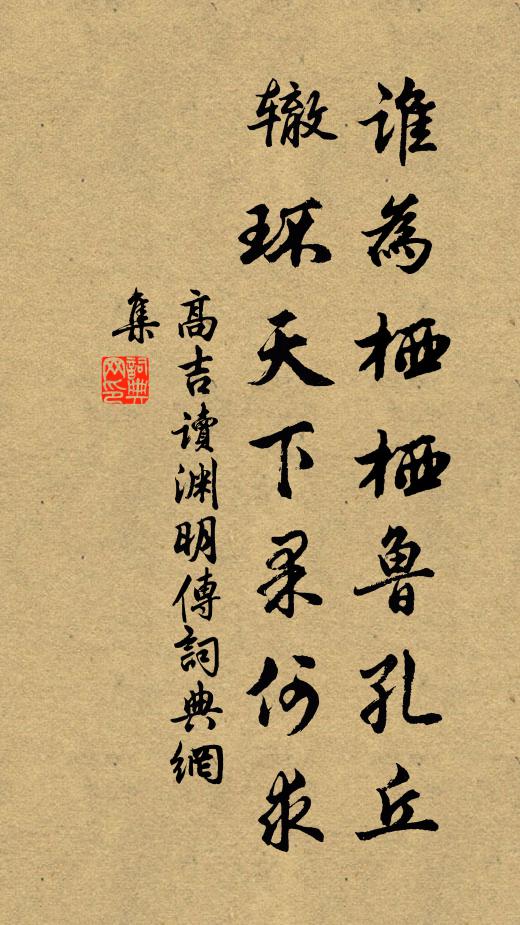 誰為栖栖魯孔丘
辙环天下果何求
高吉讀渊明傳詞典網
集
詞典
网印